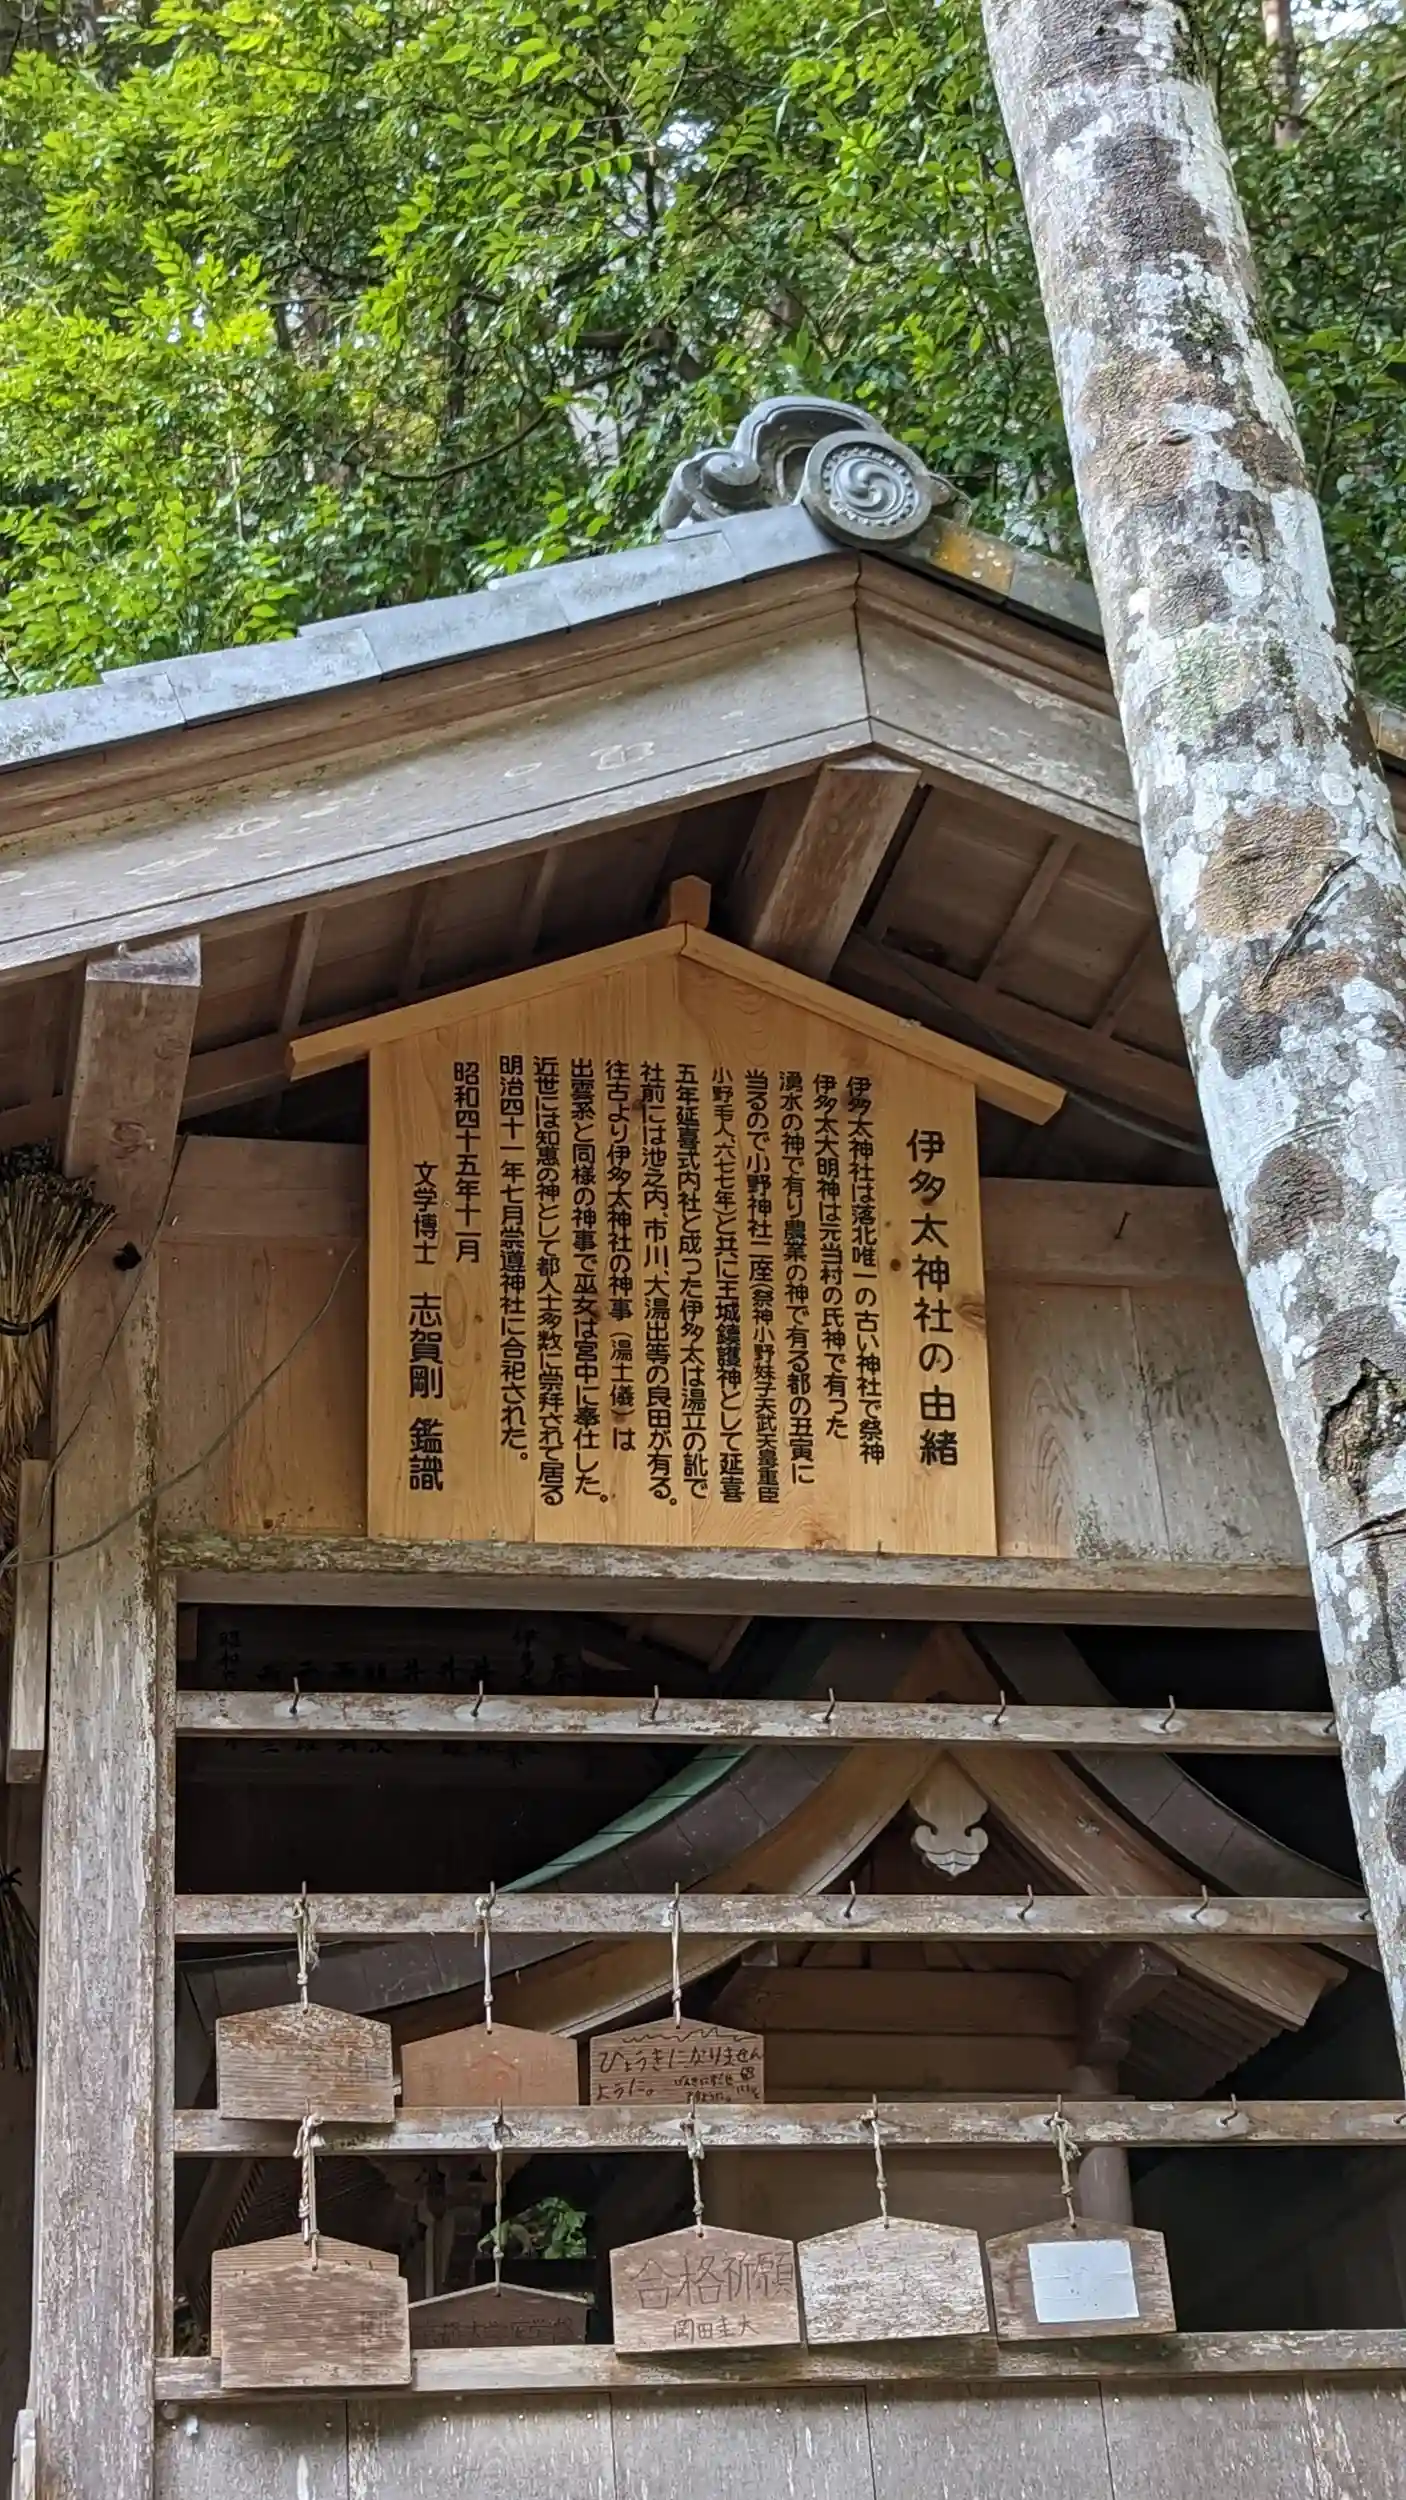 伊多太神社の由緒
伊多太神社は落北唯一の古い神社で祭神
伊多太大明神は元当村の氏神で有った
湧水の神で有り農業の神で有る都の丑寅に
当るので小野神社二座(祭神小野妹子天武天皇重臣
小野毛人、六七七年)と共に王城鎮護神として延喜
五年延喜式内社と成った伊多太は湯立の訛で
社前には池之内、市川、大湯出等の良田が有る。
往古より伊多太神社の神事(湯土儀)は
出雲系と同様の神事で巫女は宮中に奉仕した。
近世には知恵の神として都人士多数に崇拝されて居る
明治四十一年七月崇導神社に合祀された。
昭和四十五年十一月
文学博士 志賀剛 鑑識
ひょうきになりません
ように。
合格祈願
岡田圭大